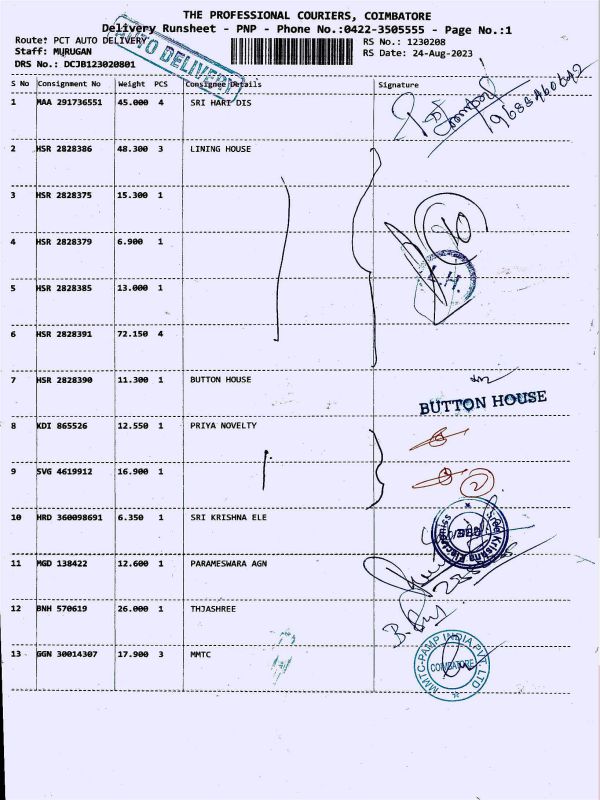 THE PROFESSIONAL COURIERS, COIMBATORE
Delivery Runsheet - PNP - Phone No.:0422-3505555 - Page No.:1
Route: PCT AUTO DELIVERY
RS No.: 1230208
Staff: MURUGAN
RS Date: 24-Aug-2023
DRS No.: DCJB123020801
AUTO DELIVERY
S No Consignment No Weight PCS Consignee Details Signature
1 MAA 291736551 45.000 4 SRI HARI DIS
2 HSR 2828386 48.300 3 LINING HOUSE
3 HSR 2828375 15.300 1
4 HSR 2828379 6.900 1
L.H.
5 HSR 2828385 13.000 1
6 HSR 2828391 72.150 4
7 HSR 2828390 11.300 1 BUTTON HOUSE
BUTTON HOUSE
8 KDI 865526 12.550 1 PRIYA NOVELTY
9 SVG 4619912 16.900 1
2
10 HRD 360098691 6.350 1 SRI KRISHNA ELE
11 MGD 138422 12.600 1 PARAMESWARA AGN
12 BNH 570619 26.000 1 THJASHREE
13 GGN 30014307 17.900 3 MMTC
MMTC-PAMP INDIA PVT. LTD
COIMBATORE